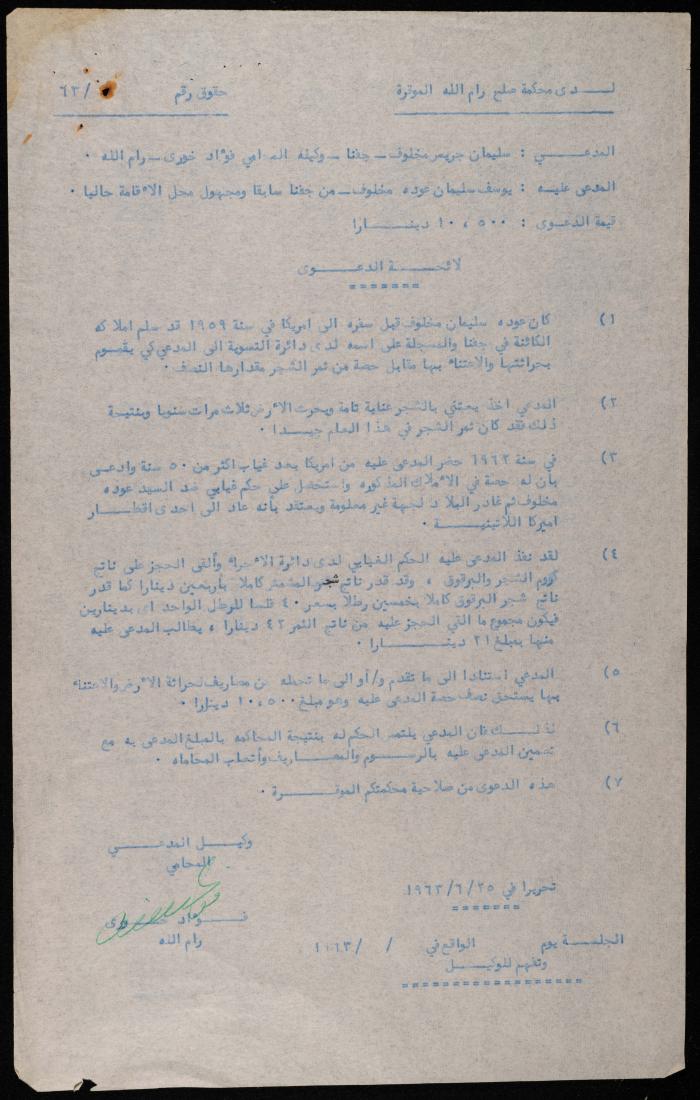 لدى محكمة صلح رام الله الموقرة
حقوق رقم /٦٣
المدعي : سليمان جريس مخلوف - جفنا - وكيله المحامي فؤاد خورى - رام الله .
المدعى عليه : يوسف سليمان عوده مخلوف - من جفنا سابقا ومجهول محل الاقامة حاليا .
قيمة الدعوى : ١٠،٥٠٠ دينارا
لائحة الدعوى
١) كان عوده سليمان مخلوف قبل سفره الى امريكا في سنة ١٩٥٩ قد سلم املاكه
الكائنة في جفنا والمسجلة على اسمه لدى دائرة التسوية الى المدعي كي يقوم
بحراثتها والاعتناء بها مقابل حصة من ثمر الشجر مقدارها النصف .
٢) المدعي اخذ يعتني بالشجر عناية تامة ويحرث الارض ثلاث مرات سنويا وبنتيجة
ذلك فقد كان ثمر الشجر في هذا العام جيدا .
٣) في سنة ١٩٦٢ حضر المدعى عليه من امريكا بعد غياب اكثر من ٥٠ سنة وادعى
بأن له حصة في الاملاك المذكوره واستحصل على حكم غيابي ضد السيد عوده
مخلوف ثم غادر البلاد لجهة غير معلومة ويعتقد بأنه عاد الى احدى اقطار
اميركا اللاتينية .
٤) لقد نفذ المدعى عليه الحكم الغيابي لدى دائرة الاجراء وألقى الحجز على ناتج
كروم الشجر والبرقوق ، وقد قدر ناتج شجر المشمش كاملا بأربعين دينارا كما قدر
ناتج شجر البرقوق كاملا بخمسين رطلا بسعر ٤٠ فلسا للرطل الواحد اى بدينارين
فيكون مجموع ما القي الحجز عليه من ناتج الثمر ٤٢ دينارا ، يطالب المدعى عليه
منها بمبلغ ٢١ دينارا .
٥) المدعي استنادا الى ما تقدم و/أو الى ما تحمله من مصاريف لحراثة الارض والاعتناء
بها يستحق نصف حصة المدعى عليه وهو مبلغ ١٠،٥٠٠ دينارا .
٦) لذلك فان المدعي يلتمس الحكم له بنتيجة المحاكمه بالمبلغ المدعى به مع
تضمين المدعى عليه بالرسوم والمصاريف وأتعاب المحاماه .
٧) هذه الدعوى من صلاحية محكمتكم الموقرة .
وكيل المدعي
المحامي
تحريرا في ١٩٦٣/٦/٢٥
فؤاد خورى
رام الله
الجلسة يوم الواقع في / / ١٩٦٣
وتفهم للوكيل